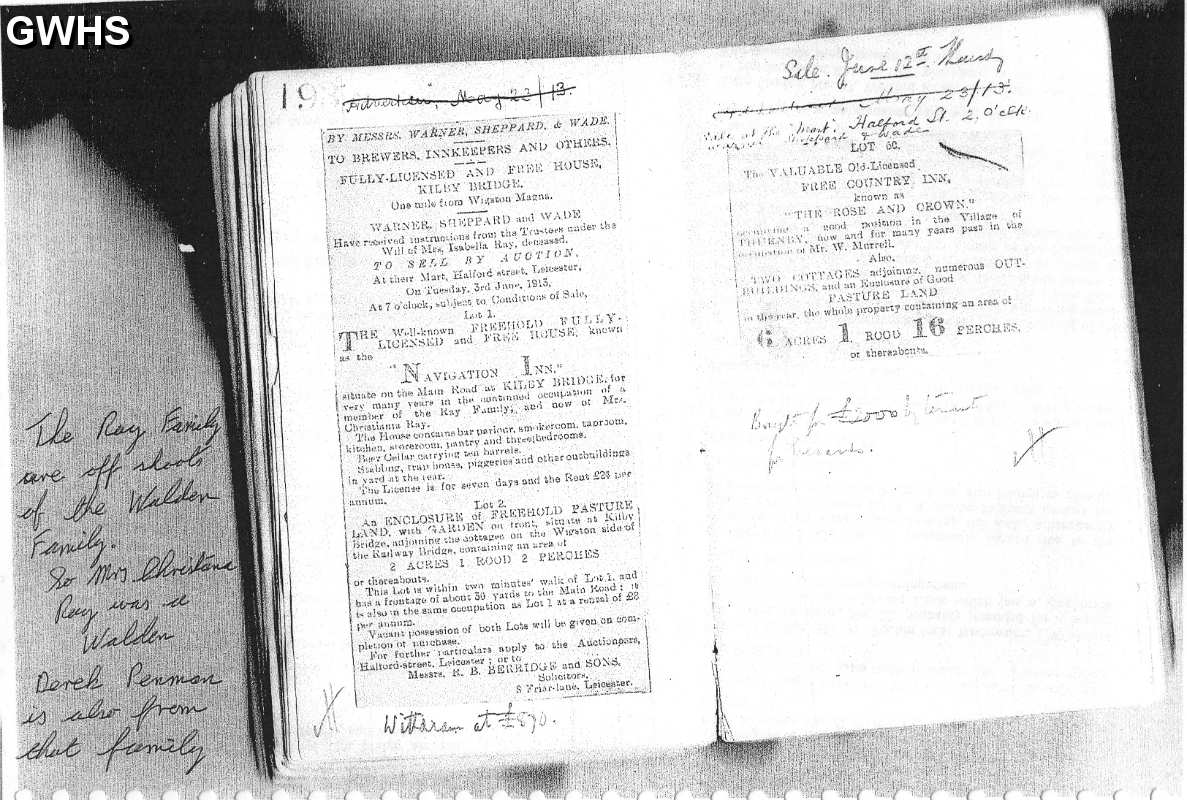 GWHS
19
Advertiser, May 23/13.
BY MESSRS. WARNER, SHEPPARD, & WADE.
TO BREWERS, INNKEEPERS AND OTHERS.
FULLY-LICENSED AND FREE HOUSE,
KILBY BRIDGE.
One mile from Wigston Magna.
WARNER, SHEPPARD and WADE
Have received instructions from the Trustees under the
Will of Mrs. Isabella Ray, deceased,
TO SELL BY AUCTION,
At their Mart, Halford street, Leicester,
On Tuesday, 3rd June, 1913,
At 7 o'clock, subject to Conditions of Sale,
Lot 1.
THE Well-known FREEHOLD FULLY-
LICENSED and FREE HOUSE, known
as the
"NAVIGATION INN."
situate on the Main Road at KILBY BRIDGE, for
very many years in the continued occupation of a
member of the Ray Family, and now of Mrs.
Christianna Ray.
The House contains bar parlour, smokeroom, taproom,
kitchen, storeroom, pantry and three bedrooms.
Beer Cellar carrying ten barrels.
Stabling, trap house, piggeries and other outbuildings
in yard at the rear.
The License is for seven days and the Rent £26 per
annum.
Lot 2.
An ENCLOSURE of FREEHOLD PASTURE
LAND, with GARDEN on front, situate at Kilby
Bridge, adjoining the cottages on the Wigston side of
the Railway Bridge, containing an area of
2 ACRES 1 ROOD 2 PERCHES
or thereabouts.
This Lot is within two minutes' walk of Lot 1, and
has a frontage of about 30 yards to the Main Road; it
is also in the same occupation as Lot 1 at a rental of £8
per annum.
Vacant possession of both Lots will be given on com-
pletion of purchase.
For further particulars apply to the Auctioneers,
Halford-street, Leicester; or to
Messrs. E. B. BERRIDGE and SONS,
Solicitors,
8 Friar-lane, Leicester.
Withdrawn at £890.
Sale. June 12th Thursday
May 23/13.
Sale at the "Mart", Halford St. 2, O'clk.
Sheppard & Wade
LOT 60.
The VALUABLE Old-Licensed
FREE COUNTRY INN,
known as
"THE ROSE AND CROWN."
occupying a good position in the Village of
THURNBY, now and for many years past in the
occupation of Mr. W. Murrell.
Also,
TWO COTTAGES adjoining, numerous OUT-
BUILDINGS, and an Enclosure of Good
PASTURE LAND
in the rear, the whole property containing an area of
6 ACRES 1 ROOD 16 PERCHES,
or thereabouts.
Bought for £2000 by tenant
for
The Ray Family
are off shoots
of the Walden
Family.
So Mrs Christana
Ray was a
Walden
Derek Penman
is also from
that family